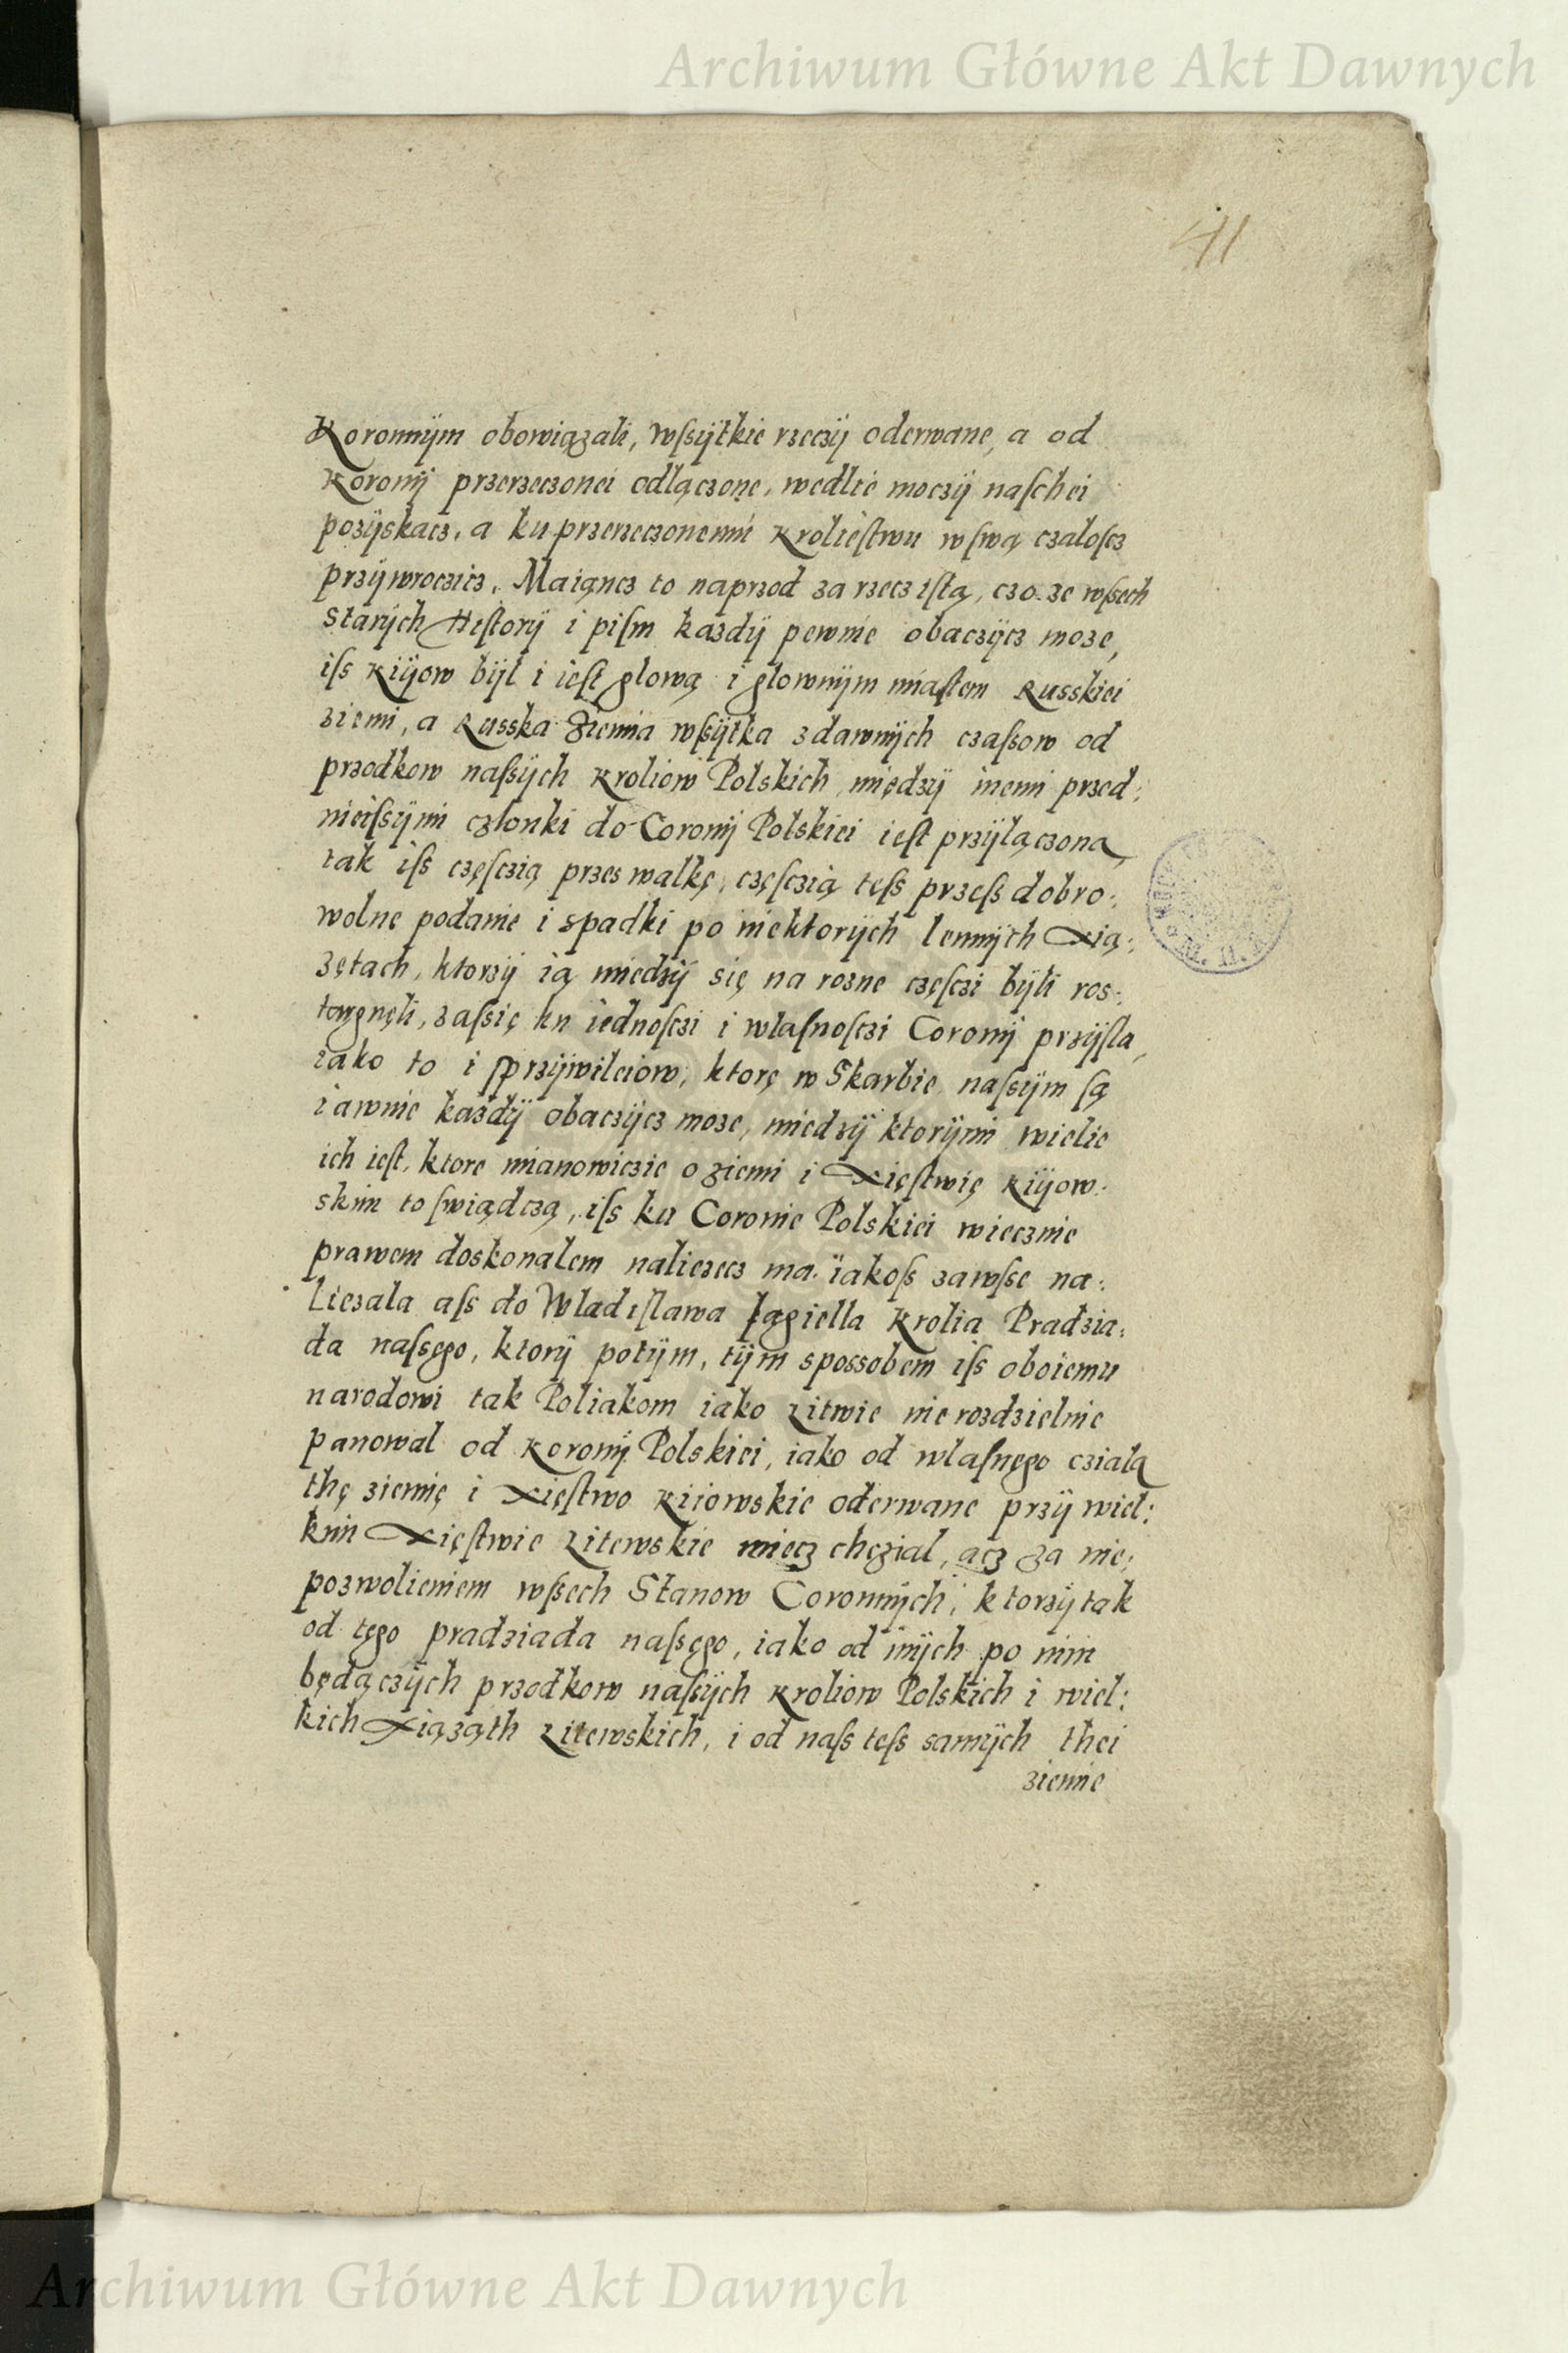 Archiwum Główne Akt Dawnych
41
Koronnÿm obowiązali, wſsÿtkie rzeczÿ oderwane, a od
Koronÿ przerzeczonei odlączone, wedlie moczÿ naſchei
pozÿskacz, a ku przerzeczonemu Kroliеſtwu w ſwą czaloſcz
przÿwroczicz. Maiąncz to naprzod za rzecz iſtą, czo ze wſsech
Starÿch Hiſtorÿ i piſm kazdÿ pewnie obaczÿcz moze,
iſs Kiÿow bÿl i ieſt glową i glownÿm miaſtem Russkiei
ziemi, a Russka Ziemia wſsÿtka zdawnÿch czaſsow od
przodkow naſsÿch Kroliow Polskich, międzÿ inemi przed:
nieiſsÿmi czlonki do Coronÿ Polskiei ieſt przÿlączona,
tak iſs częſczią przes walkę, częſczią teſs przeſs dobro:
wolne podanie i spadki po niektorÿch lennÿch Xią:
zętach, ktorzÿ ią miedzÿ się na rozne częſczi bÿli ros:
targnęli, zaſsię ku iednoſczi i wlaſnoſczi Coronÿ przÿſla,
iako to i ſprzÿwileiow, ktorę w Skarbie naſsÿm ſą
iawnie kazdÿ obaczÿcz moze, miedzÿ ktorÿmi wielie
ich ieſt, ktore mianowiczie o ziemi i Xięſtwię Kiÿow:
skim to ſwiądczą, iſs ku Coronie Polskiei wiecznie
prawem doskonalem naliezecz ma. ÿakoſs zawſse na:
Liezala aſs do Wladiſlawa Jagiella Krolia Pradzia:
da naſsęgo, ktorÿ potÿm, tÿm spossobem iſs oboiemu
narodowi tak Poliakom iako Litwie nierozdzielnie
panowal od Koronÿ Polskiei, iako od wlaſnęgo cziala
thę ziemię i Xięſtwo Kiiowskie oderwane przÿ wiel:
kim Xięſtwie Litewskie miecz chęzial, acz za nie:
pozwolieniem wſsech Stanow Coronnÿch, ktorzÿ tak
od tęgo pradziada naſsęgo, iako od inÿch po nim
będączÿch przodkow naſsÿch Kroliow Polskich i wiel:
kich Xiąząth Litewskich, i od naſs teſs samÿch thei
ziemie
Archiwum Główne Akt Dawnych